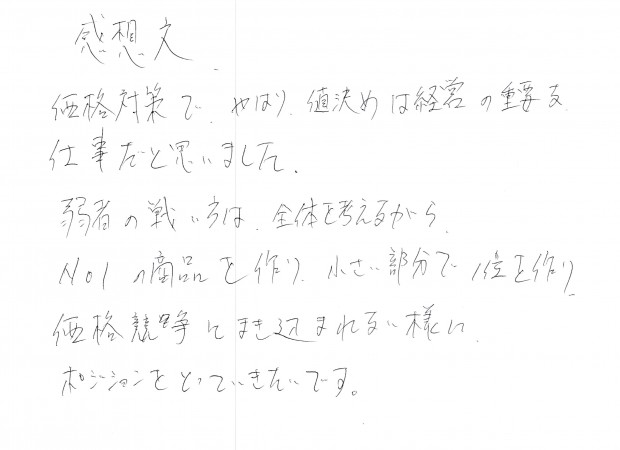 感想文
価格対策で、やはり、値決めは経営の重要な
仕事だと思いました。
弱者の戦い方は、全体を考えるから、
No1の商品を作り、小さい部分で1位を作り、
価格競争にまき込まれない様に、
ポジションをとっていきたいです。